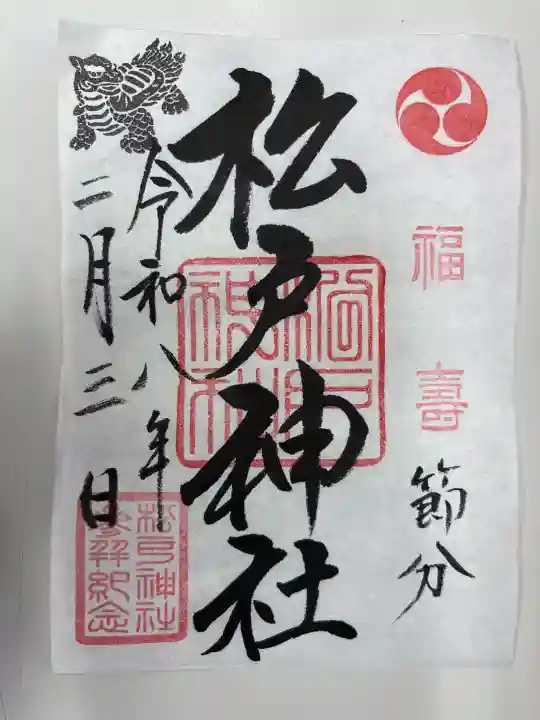 福壽
節分
松戸神社
令和八年
二月三日
松戸神社
参拝紀念